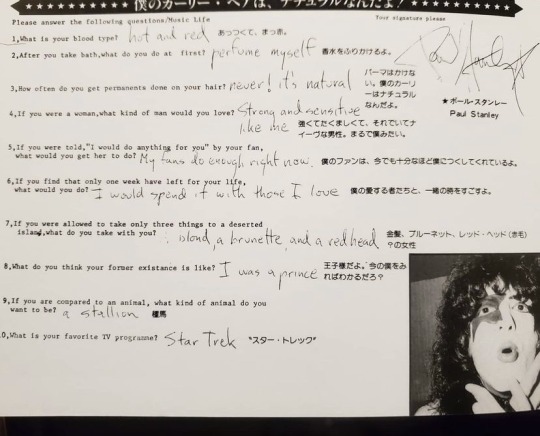 僕のカーリー・ヘアは、ナチュラルなんだよ!
Please answer the following questions/Music Life
Your signature please
1,What is your blood type? hot and red あっつくて、まっ赤。
2,After you take bath,what do you do at first? perfume myself 香水をふりかけるよ。
Paul Stanley
3,How often do you get permanents done on your hair? never! it's natural パーマはかけない。僕のカーリーはナチュラルなんだよ。
★ポール・スタンレー
Paul Stanley
4,If you were a woman,what kind of man would you love? Strong and sensitive
like me 強くてたくましくて、それでいてナイーヴな男性。まるで僕みたい。
5,If you were told,"I would do anything for you" by your fan,
what would you get her to do? My fans do enough right now. 僕のファンは、今でも十分なほど僕につくしてくれているよ。
6,If you find that only one week have left for your life,
what would you do? I would spend it with those I love 僕の愛する者たちと、一緒の時をすごすよ。
7,If you were allowed to take only three things to a deserted
island,what do you take with you? blond, a brunette, and a redhead 金髪、ブルーネット、レッド・ヘッド(赤毛)
?の女性
8,What do you think your former existance is like? I was a prince 王子様だよ。今の僕をみればわかるだろ?
9,If you are compared to an animal, what kind of animal do you
want to be? a stallion 種馬
0,What is your favorite TV programme? Star Trek "スター・トレック"